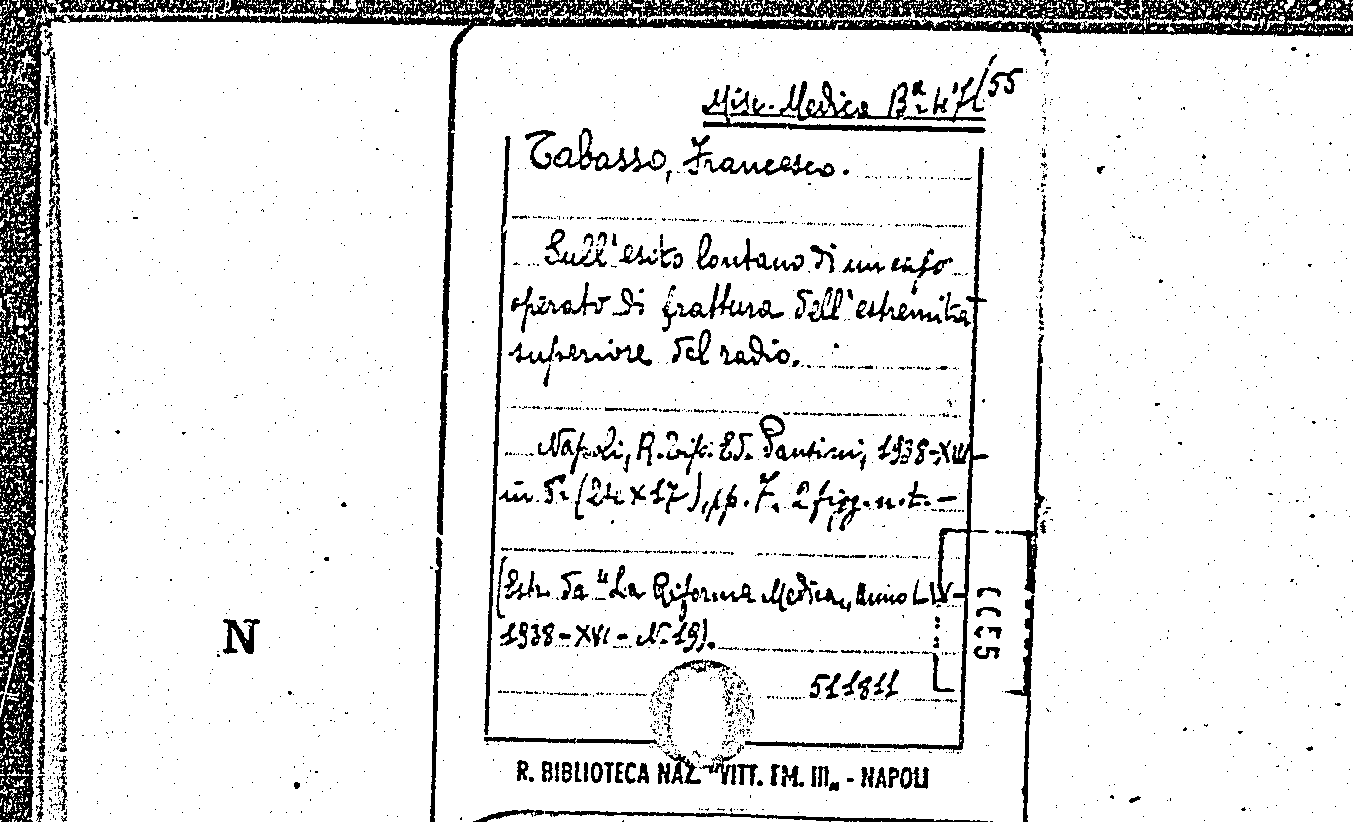 Misc. Medica Bª 471/55
Tabasso, Francesco.
Sull'esito lontano di un caso
operato di frattura dell'estremità
superiore del radio.
Napoli, R. Tip. Ed. Pantini, 1938-XVI
in 8° (24 x 17), pp. 7. 2 figg. n. t. -
(Estr. da "La Riforma Medica„ anno LIV-
1938-XVI - N. 19).
511811
N
R. BIBLIOTECA NAZ. "VITT. EM. III„ - NAPOLI